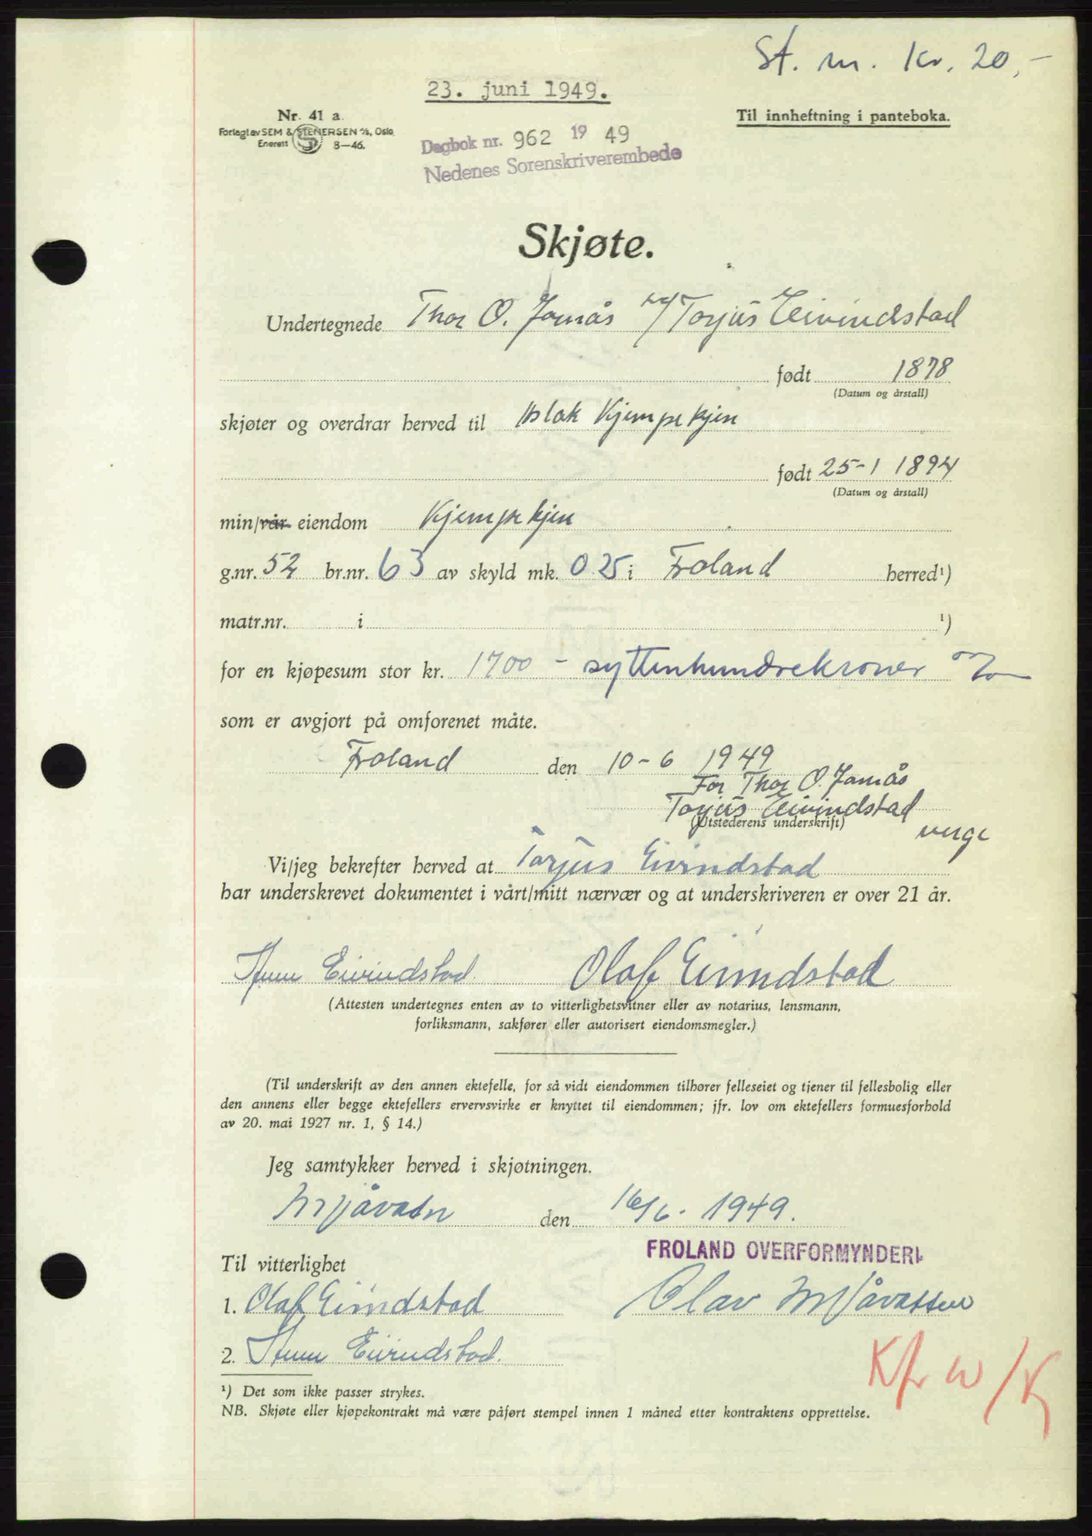 St. m. Kr. 20,-
23. juni 1949.
Nr. 41 a.
Til innheftning i panteboka.
Forlagt av SEM & STENERSEN A/S, Oslo.
Enerett 8-46.
Dagbok nr. 962 19 49
Nedenes Sorenskriverembede
Skjøte.
Undertegnede Thor O. Jomås v/Torjus Eivindstad
født 1878
(Datum og årstall)
skjøter og overdrar herved til Aslak Kjempekjen
født 25-1 1894
(Datum og årstall)
min/vår eiendom Kjempekjen
g.nr. 52 br.nr. 63 av skyld mk. 0.25 i Froland herred¹)
matr.nr. i ¹)
for en kjøpesum stor kr. 1700 - syttenhundrekroner
som er avgjort på omforenet måte.
Froland den 10-6 1949
For Thor O. Jomås
Torjus Eivindstad
(Utstederens underskrift)
verge
Vi/jeg bekrefter herved at Torjus Eivindstad
har underskrevet dokumentet i vårt/mitt nærvær og at underskriveren er over 21 år.
Eivindstad. Olaf Eivindstad
(Attesten undertegnes enten av to vitterlighetsvitner eller av notarius, lensmann,
forliksmann, sakfører eller autorisert eiendomsmegler.)
(Til underskrift av den annen ektefelle, for så vidt eiendommen tilhører felleseiet og tjener til fellesbolig eller
den annens eller begge ektefellers ervervsvirke er knyttet til eiendommen; jfr. lov om ektefellers formuesforhold
av 20. mai 1927 nr. 1, § 14.)
Jeg samtykker herved i skjøtningen.
Mjåvatn den 16/6 - 1949.
FROLAND OVERFORMYNDERI
Til vitterlighet
1. Olaf Eivindstad
Olav Mjåvatten
2. Eivindstad.
¹) Det som ikke passer strykes.
NB. Skjøte eller kjøpekontrakt må være påført stempel innen 1 måned etter kontraktens opprettelse.